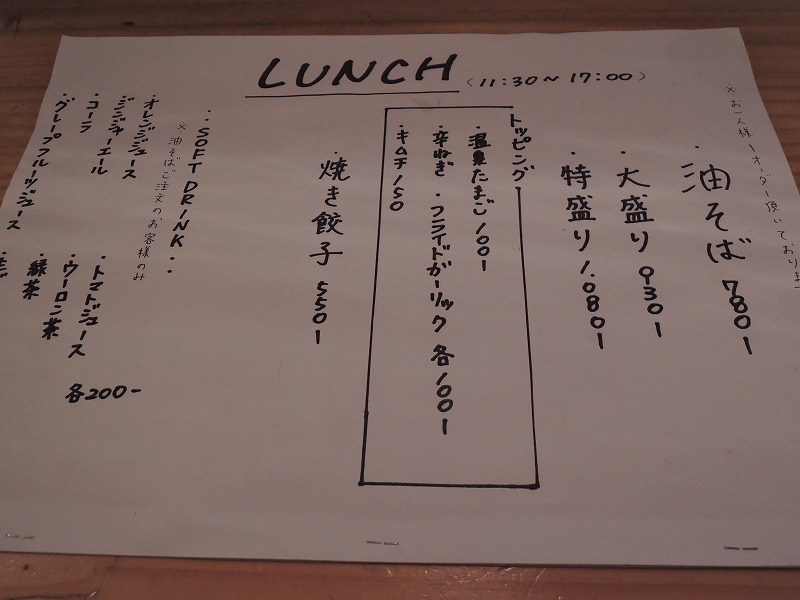 LUNCH (11:30〜17:00)
※お一人様1オーダー頂いております
・油そば 780-
・大盛り 930-
・特盛り 1.080-
トッピング
・温泉たまご 100-
・辛ねぎ ・フライドガーリック 各100-
・キムチ 150
・焼き餃子 550-
・・SOFT DRINK・・
※油そばご注文のお客様のみ
・オレンジジュース
・ジンジャーエール
・コーラ
・グレープフルーツジュース
・トマトジュース
・ウーロン茶
・緑茶
各200-